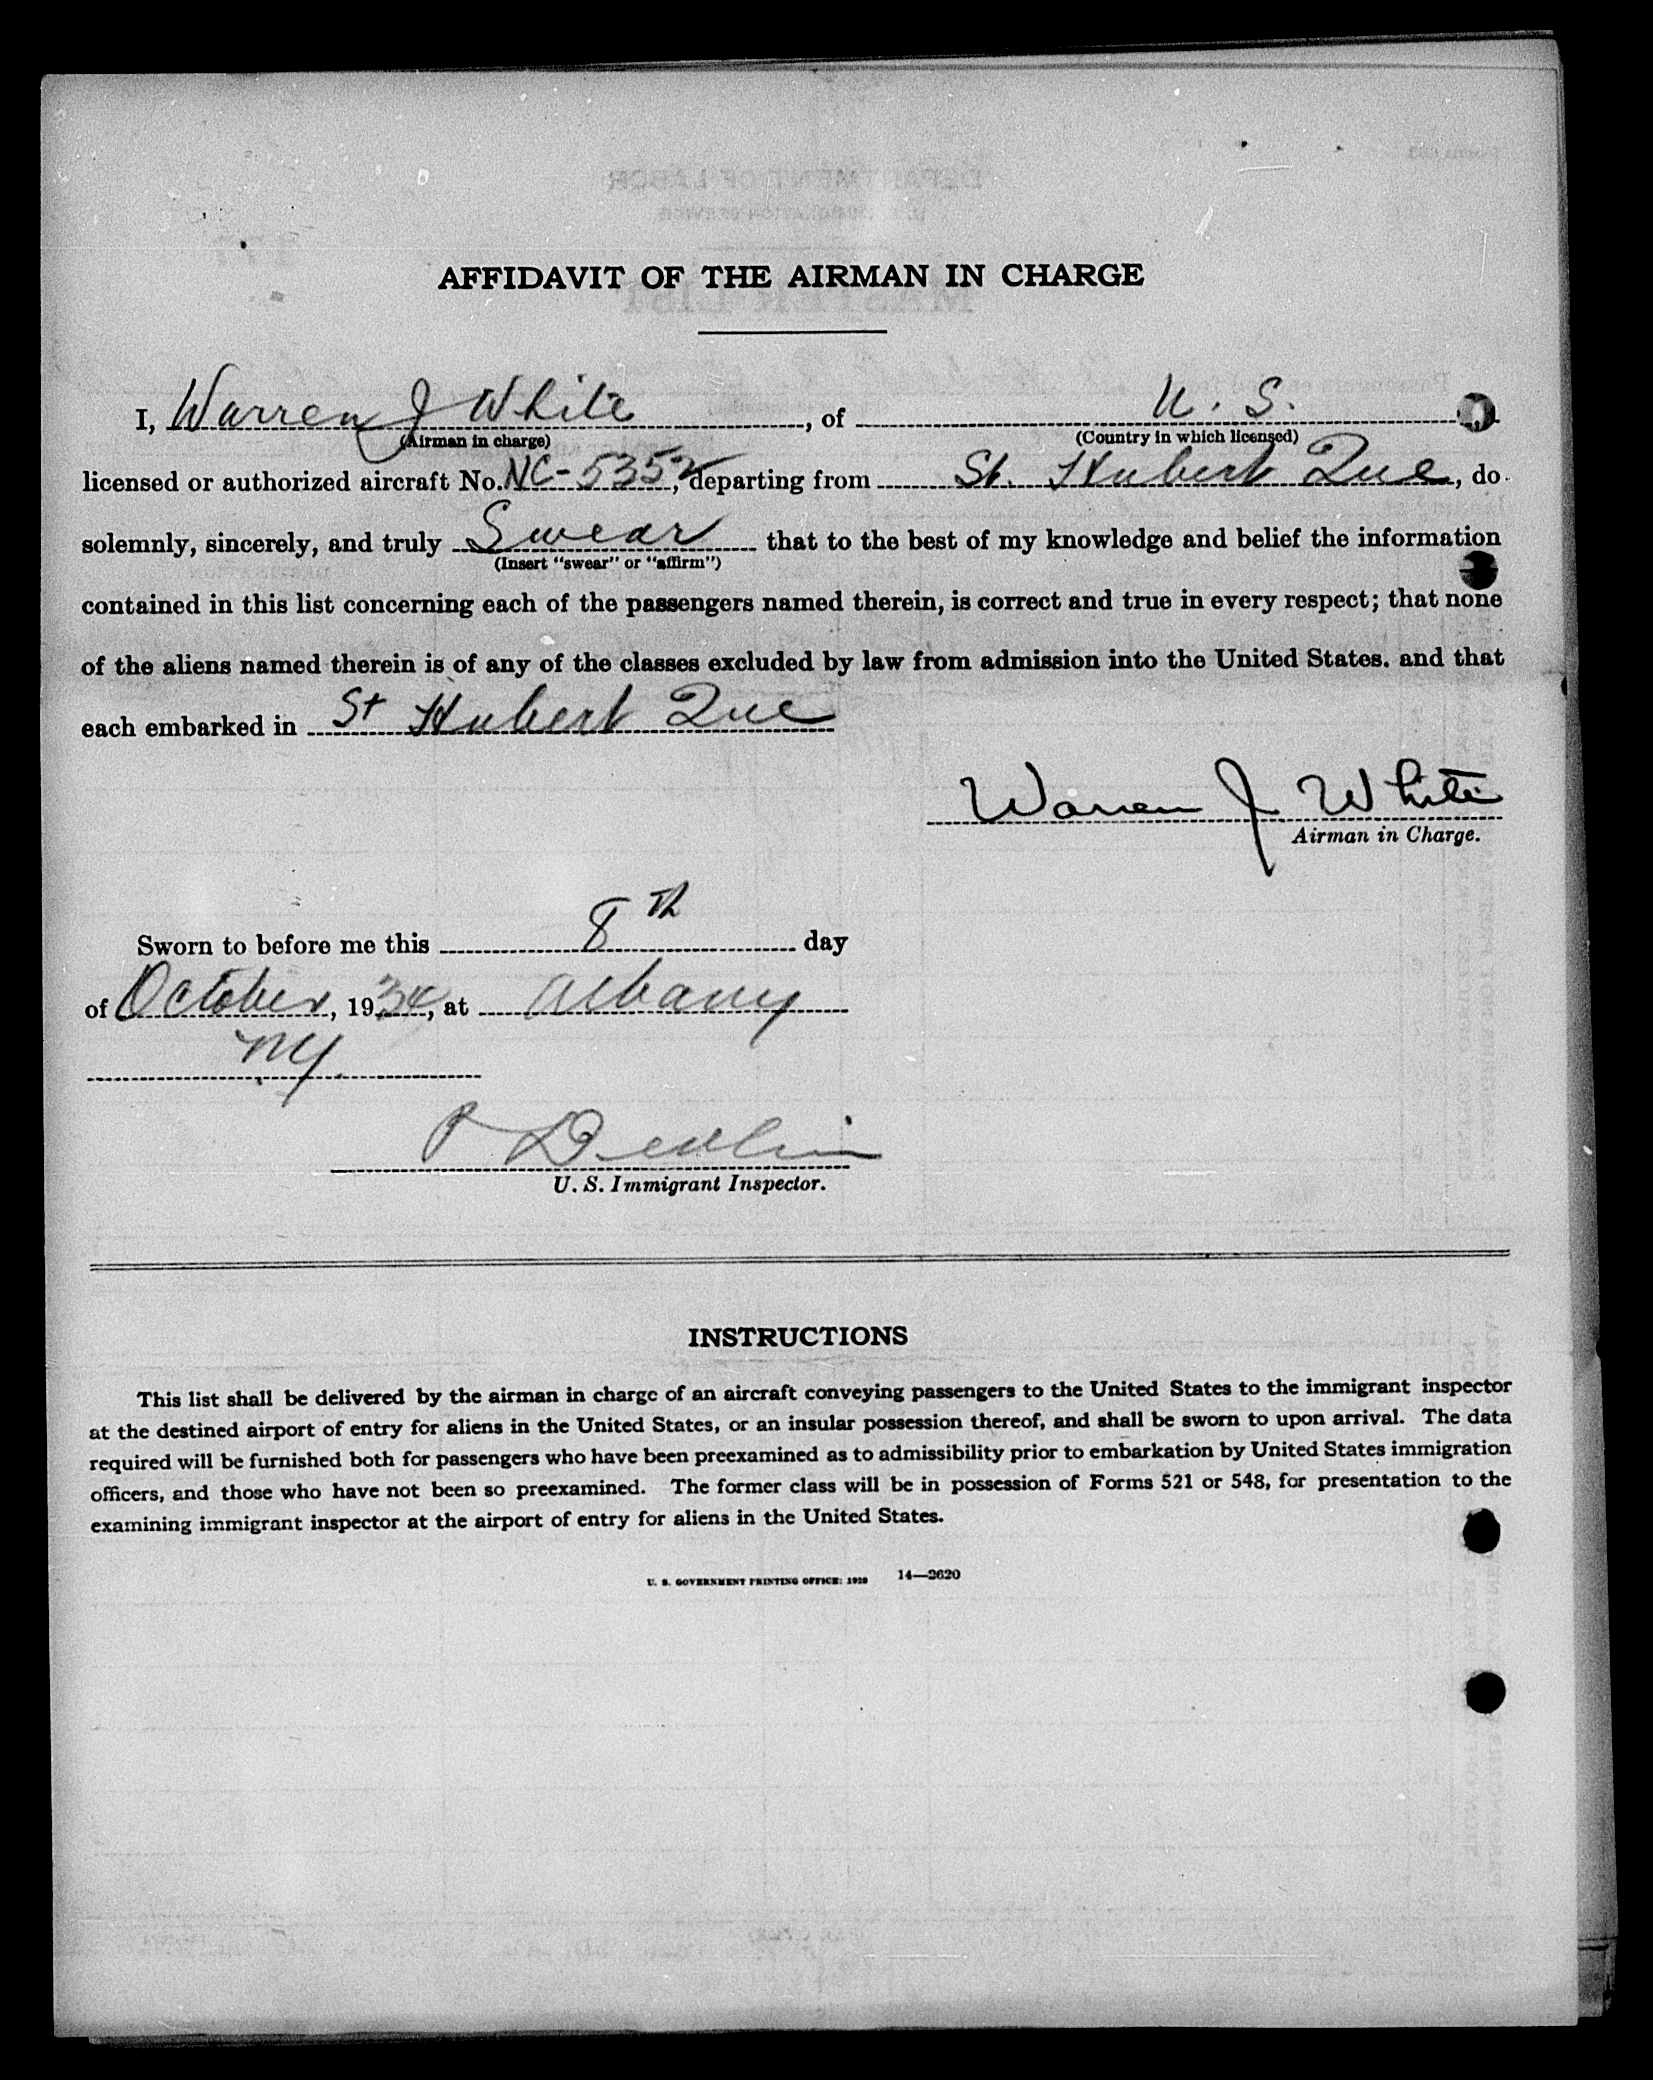 AFFIDAVIT OF THE AIRMAN IN CHARGE
I, Warren J White, of U. S.
(Airman in charge) (Country in which licensed)
licensed or authorized aircraft No. NC-5352, departing from St. Hubert Que, do
solemnly, sincerely, and truly Swear that to the best of my knowledge and belief the information
(Insert "swear" or "affirm")
contained in this list concerning each of the passengers named therein, is correct and true in every respect; that none
of the aliens named therein is of any of the classes excluded by law from admission into the United States. and that
each embarked in St Hubert Que
Warren J White
Airman in Charge.
Sworn to before me this 8th day
of October, 1934, at Albany
NY.
P Devlin
U. S. Immigrant Inspector.
INSTRUCTIONS
This list shall be delivered by the airman in charge of an aircraft conveying passengers to the United States to the immigrant inspector
at the destined airport of entry for aliens in the United States, or an insular possession thereof, and shall be sworn to upon arrival. The data
required will be furnished both for passengers who have been preexamined as to admissibility prior to embarkation by United States immigration
officers, and those who have not been so preexamined. The former class will be in possession of Forms 521 or 548, for presentation to the
examining immigrant inspector at the airport of entry for aliens in the United States.
U. S. GOVERNMENT PRINTING OFFICE: 1929 14—2620